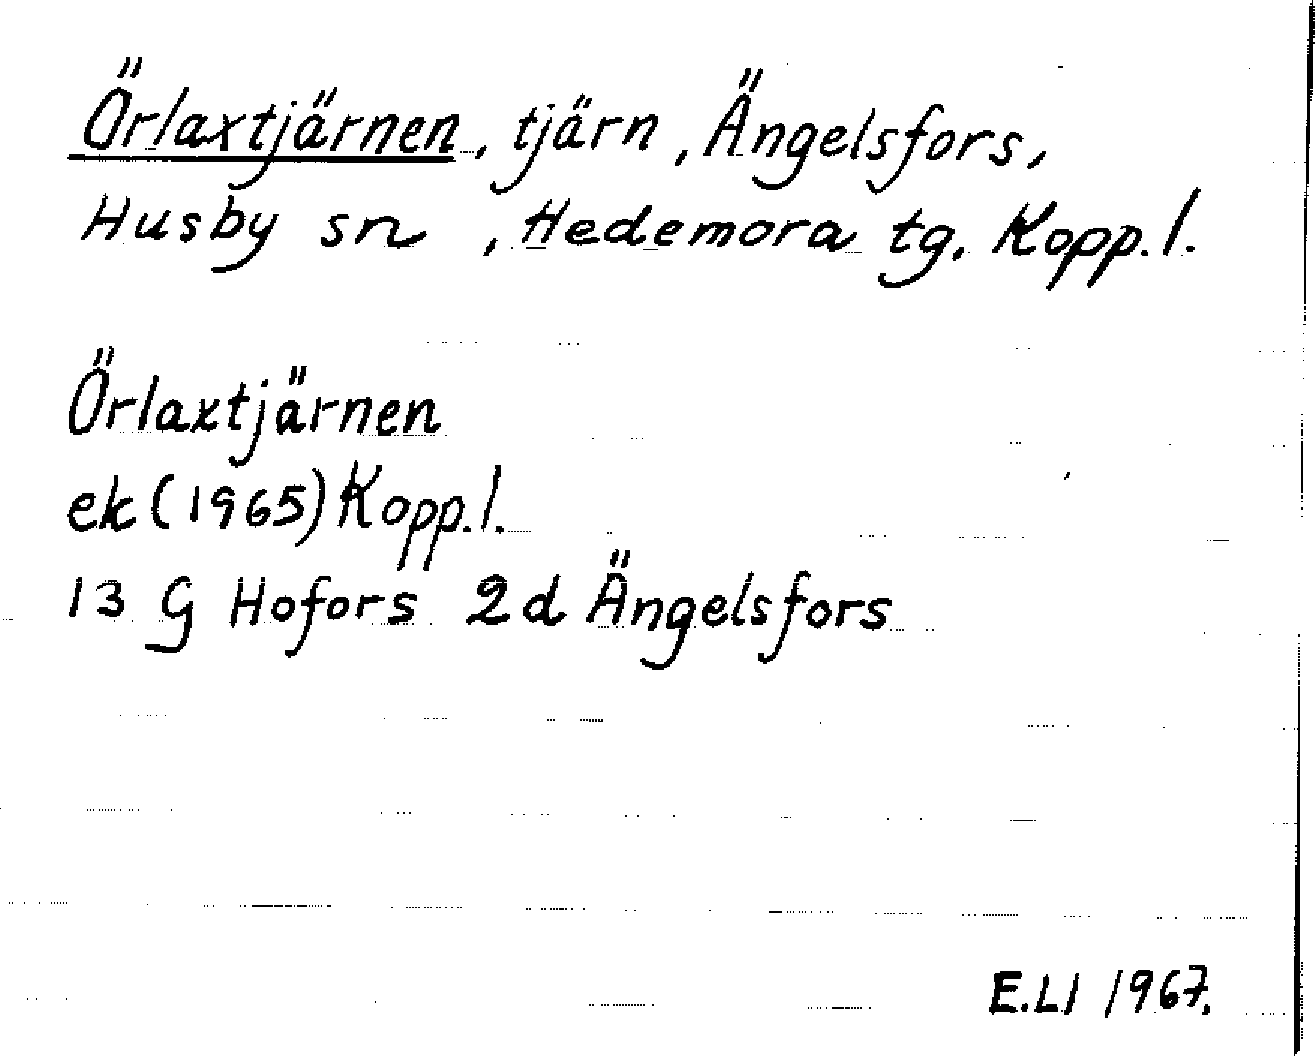 Örlaxtjärnen, tjärn, Ängelsfors,
Husby sn, Hedemora tg. Kopp.l.
Örlaxtjärnen
ek (1965) Kopp.l.
13 G Hofors 2d Ängelsfors
E.LI 1967.